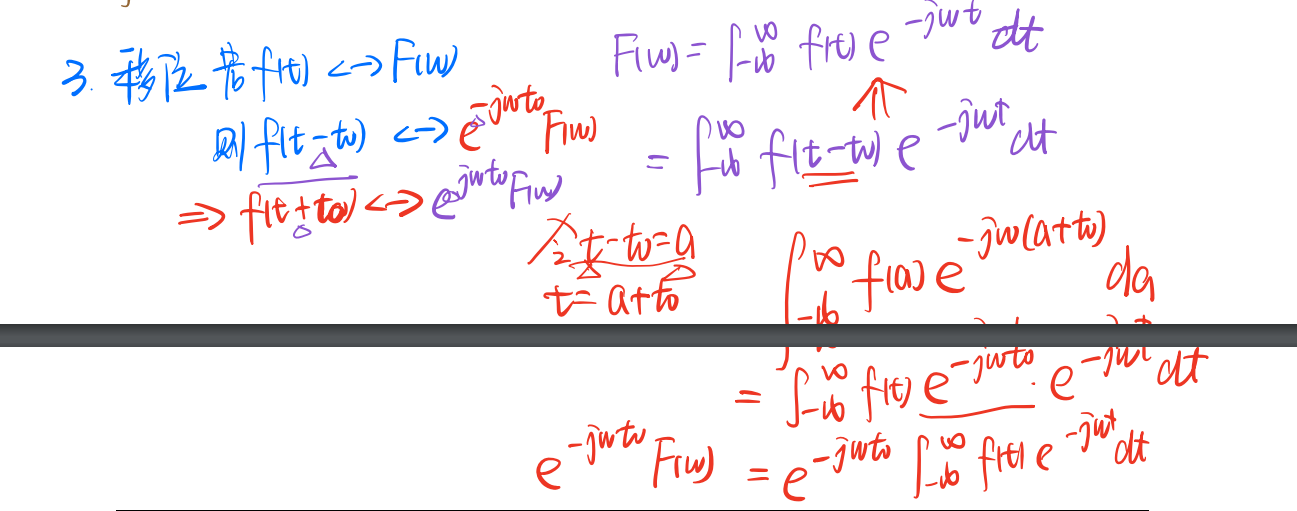 3. 移位 若 f(t) <-> F(w)
则 f(t-t₀) <-> e^{-jwt₀} F(w)
=> f(t+t₀) <-> e^{jwt₀} F(w)
F(w) = ∫_{-∞}^{∞} f(t) e^{-jwt} dt
= ∫_{-∞}^{∞} f(t-t₀) e^{-jwt} dt
令 t-t₀=a
t=a+t₀
∫_{-∞}^{∞} f(a) e^{-jw(a+t₀)} da
= ∫_{-∞}^{∞} f(t) e^{-jwt₀} · e^{-jwt} dt
e^{-jwt₀} F(w) = e^{-jwt₀} ∫_{-∞}^{∞} f(t) e^{-jwt} dt